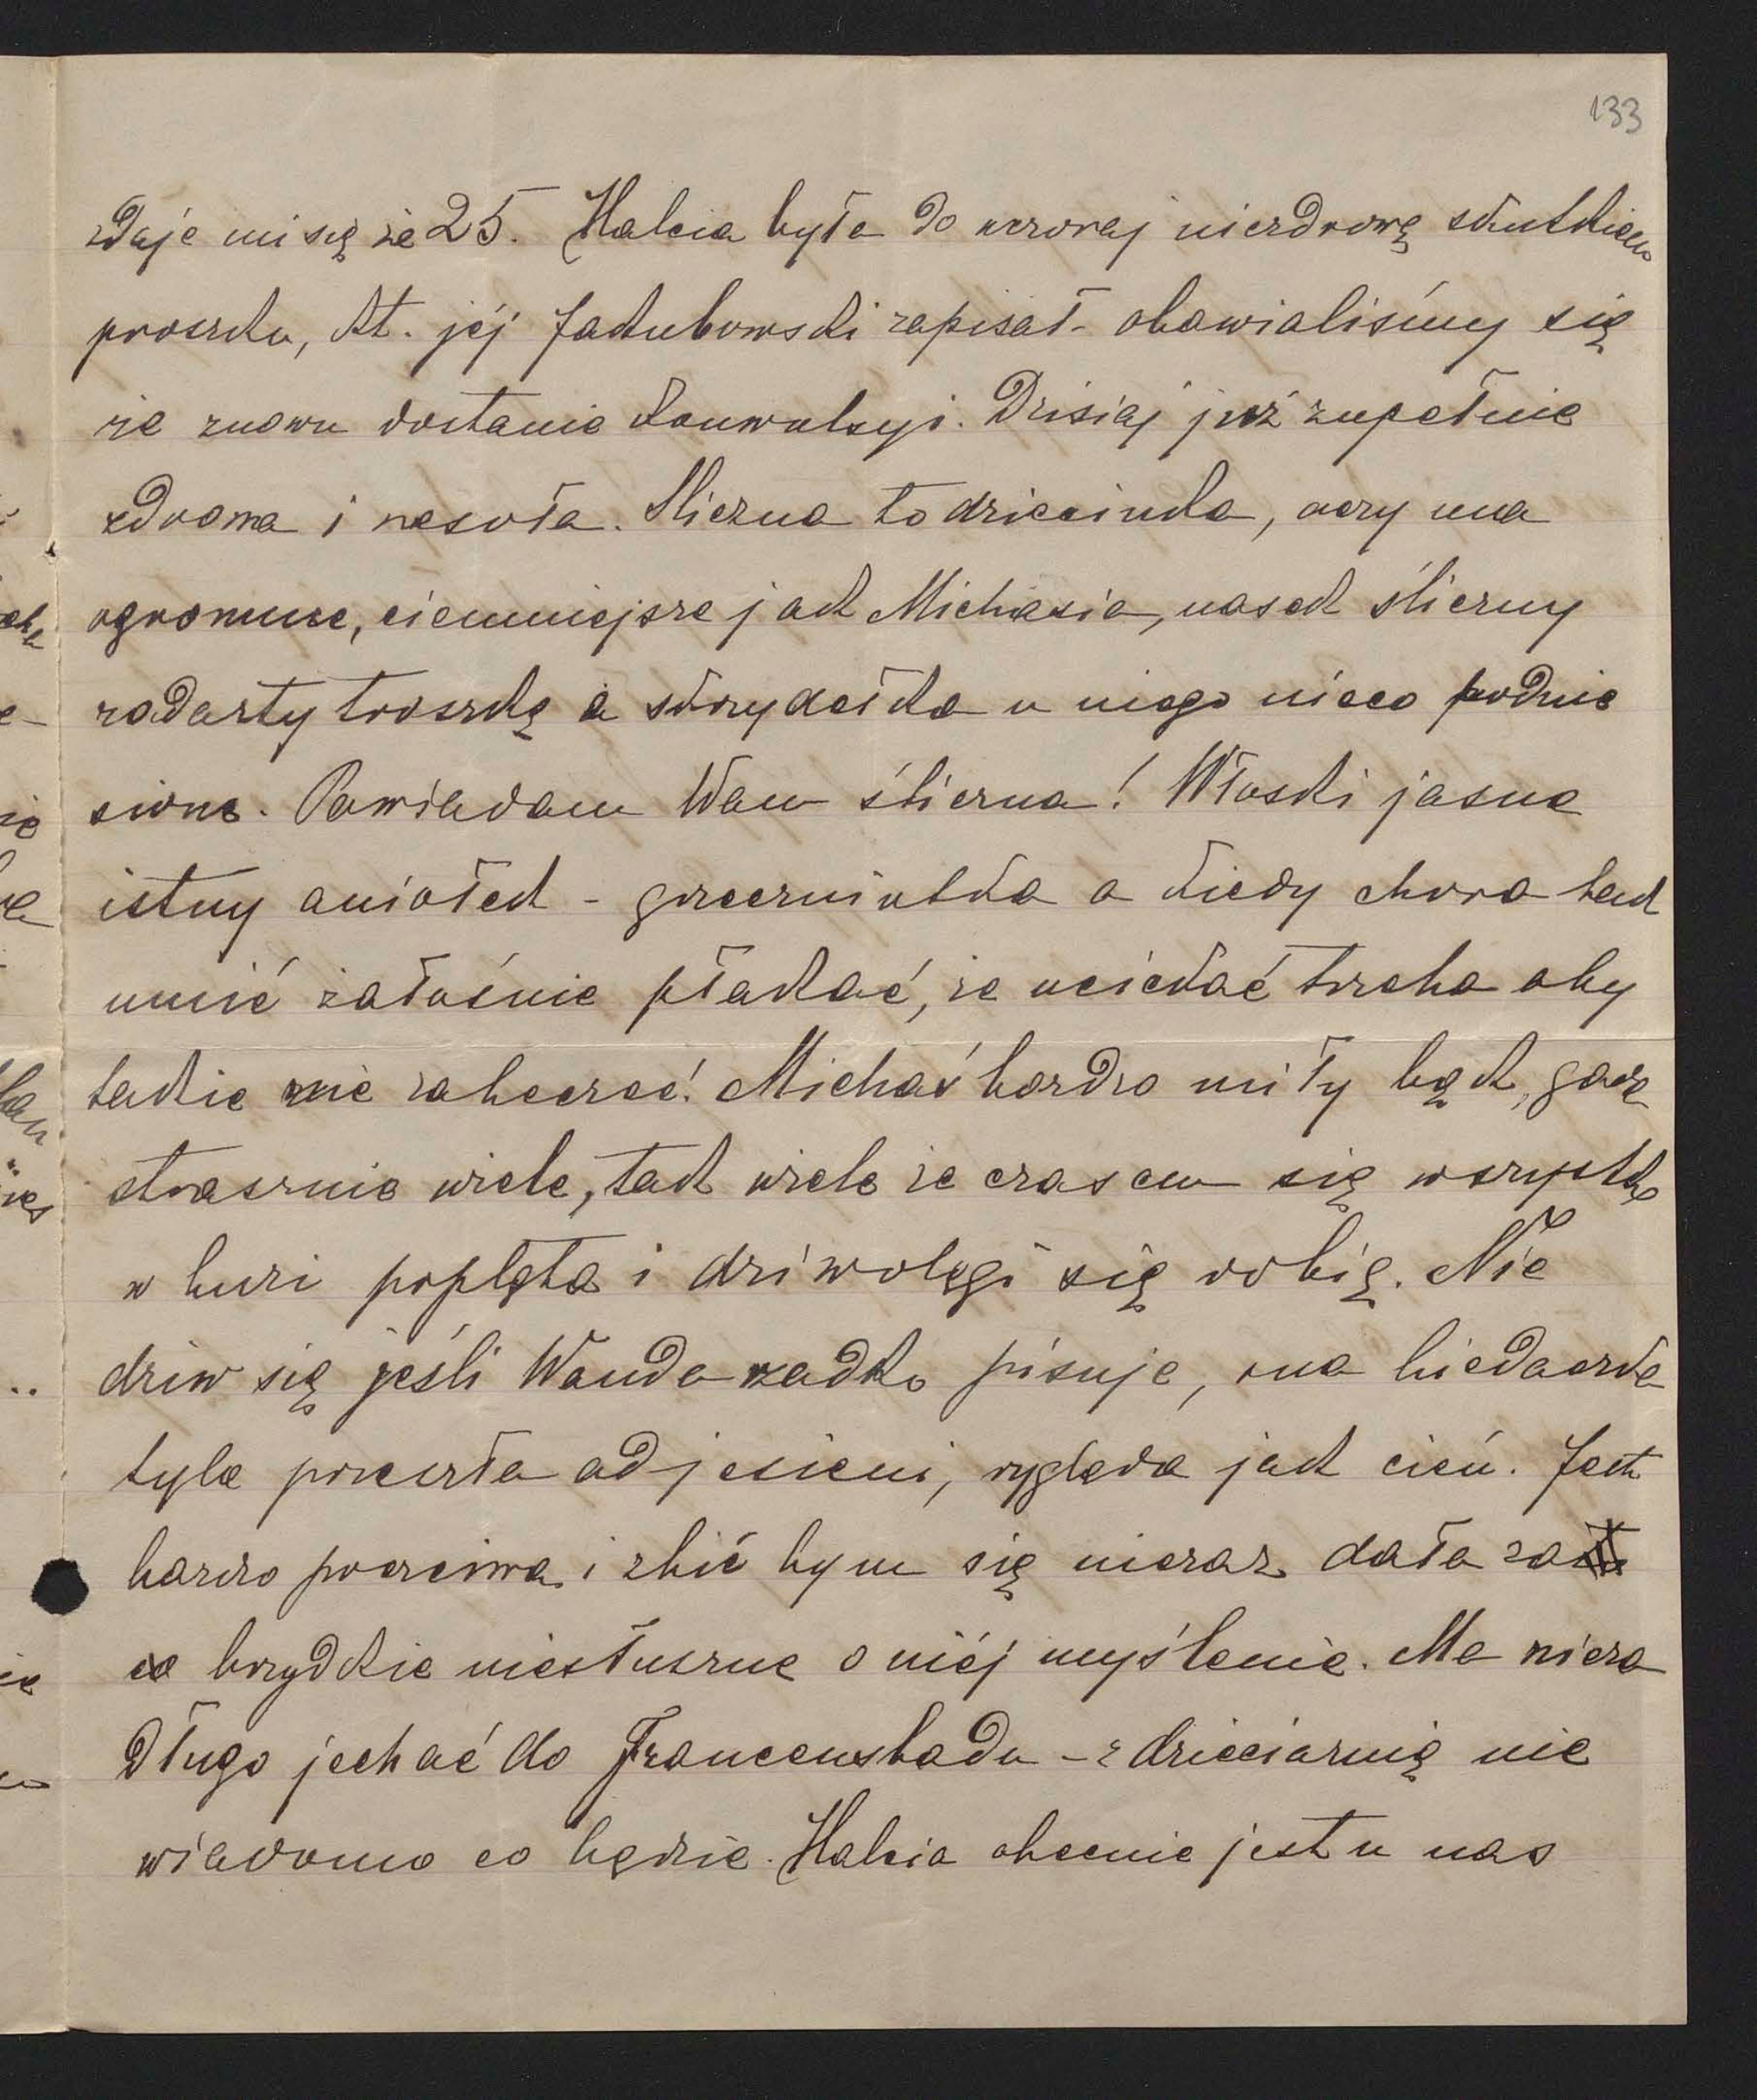 133
zdaje mi się że 25. Halcia była do wczoraj niezdrową skutkiem
proszku, kt. jéj Jakubowski zapisał - obawialiśmy się
że znowu dostanie konwulsyi. Dzisiaj już zupełnie
zdrowa i wesoła. Śliczna to dziecinka, oczy ma
ogromne, ciemniejsze jak Michasia, nosek śliczny
zadarty troszkę a skrzydełka u niego nieco podnie
sione. Powiadam Wam śliczna! Włoski jasne
istny aniołek - grzeczniutka a kiedy chora tak
umié żałośnie płakać, że uciekać trzeba aby
także nie zabeczeć! Michaś bardzo miły bąk, gada
strasznie wiele, tak wiele że czasem się wszystko
w buzi popląta i dziwolęgi się robią. Nie
dziw się jeśli Wanda rzadko pisuje, ona biedaczka
tyle przeszła od jesieni, wygląda jak cień. Jest
bardzo poczciwa i zbić bym się nieraz dała za
brzydkie niesłuszne o niéj myślenie. Ma nieza
długo jechać do Francensbadu - z dzieciarnią nie
wiadomo co będzie. Halcia obecnie jest u nas